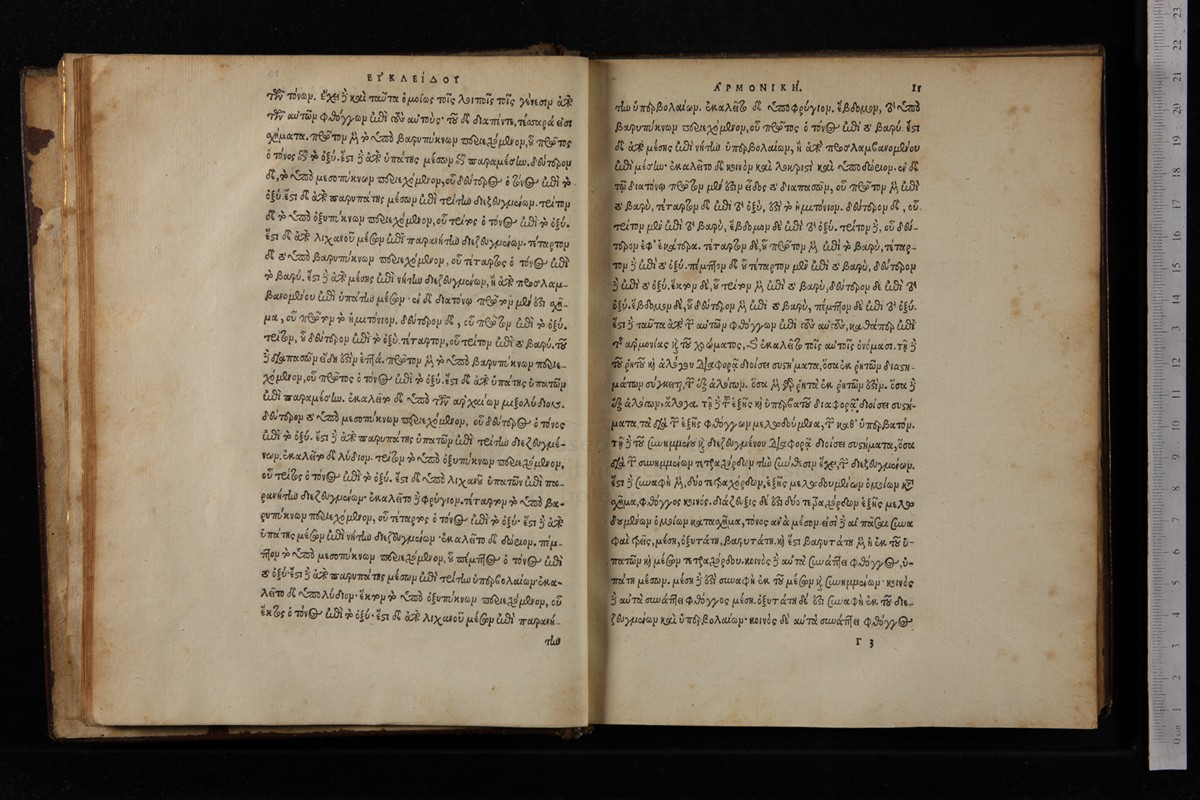 ΕΥΚΛΕΙΔΟΥ
τὸν τόνον. ἔχει δὲ καὶ ταῦτα ὁμοίως τοῖς λοιποῖς τοῖς γένεσιν ἀπὸ
τῶν αὐτῶν φθόγγων ἐπὶ τοὺς αὐτούς· τοῦ δὲ διαπέντε, τέσσαρά εἰσι
χήματα. πρῶτον μὲν τὸ ὑπὸ βαρυπύκνων περιεχόμενον, οὗ πρῶτος
ὁ τόνος ἐπὶ τὸ ὀξύ. ἔστι δὲ ἀπὸ ὑπάτης μέσων ἐπὶ παραμέσην. δεύτερον
δὲ, τὸ ὑπὸ μεσοπύκνων περιεχόμενον, οὗ δεύτερος ὁ τόνος ἐπὶ τὸ
ὀξύ. ἔστι δὲ ἀπὸ παρυπάτης μέσων ἐπὶ τρίτην διεζευγμένων. τρίτον
δὲ τὸ ὑπὸ ὀξυπύκνων περιεχόμενον, οὗ τρίτος ὁ τόνος ἐπὶ τὸ ὀξύ.
ἔστι δὲ ἀπὸ λιχανοῦ μέσων ἐπὶ παρανήτην διεζευγμένων. τέταρτον
δὲ τὸ ὑπὸ βαρυπύκνων περιεχόμενον, οὗ τέταρτος ὁ τόνος ἐπὶ
τὸ βαρύ. ἔστι δὲ ἀπὸ μέσης ἐπὶ νήτην διεζευγμένων, ἢ ἀπὸ προσλαμ-
βανομένου ἐπὶ ὑπάτην μέσων· ἐν δὲ διατόνῳ πρῶτον μέν ἐστι χῆ-
μα, οὗ πρῶτον τὸ ἡμιτόνιον. δεύτερον δὲ, οὗ πρῶτον ἐπὶ τὸ ὀξύ.
τρίτον, οὗ δεύτερον ἐπὶ τὸ ὀξύ. τέταρτον, οὗ τρίτον ἐπὶ τὸ βαρύ. τοῦ
δὲ διαπασῶν εἴδη ἐστὶν ἑπτά. πρῶτον μὲν τὸ ὑπὸ βαρυπύκνων περιε-
χόμενον, οὗ πρῶτος ὁ τόνος ἐπὶ τὸ ὀξύ. ἔστι δὲ ἀπὸ ὑπάτης ὑπατῶν
ἐπὶ παραμέσην. ἐκαλεῖτο δὲ ὑπὸ τῶν ἀρχαίων μιξολύδιος.
δεύτερον τὸ ὑπὸ μεσοπύκνων περιεχόμενον, οὗ δεύτερος ὁ τόνος
ἐπὶ τὸ ὀξύ. ἔστι δὲ ἀπὸ παρυπάτης ὑπατῶν ἐπὶ τρίτην διεζευγμέ-
νων. ἐκαλεῖτο δὲ λύδιον. τρίτον τὸ ὑπὸ ὀξυπύκνων περιεχόμενον,
οὗ τρίτος ὁ τόνος ἐπὶ τὸ ὀξύ. ἔστι δὲ ἀπὸ λιχανοῦ ὑπατῶν ἐπὶ πα-
ρανήτην διεζευγμένων· ἐκαλεῖτο δὲ φρύγιον. τέταρτον τὸ ὑπὸ βα-
ρυπύκνων περιεχόμενον, οὗ τέταρτος ὁ τόνος ἐπὶ τὸ ὀξύ· ἔστι δὲ ἀπὸ
ὑπάτης μέσων ἐπὶ νήτην διεζευγμένων· ἐκαλεῖτο δὲ δώριον. πέμ-
πτον τὸ ὑπὸ μεσοπύκνων περιεχόμενον, οὗ πέμπτος ὁ τόνος ἐπὶ
τὸ ὀξύ· ἔστι δὲ ἀπὸ παρυπάτης μέσων ἐπὶ τρίτην ὑπερβολαίων. ἐκα-
λεῖτο δὲ ὑπολύδιον· ἕκτον τὸ ὑπὸ ὀξυπύκνων περιεχόμενον, οὗ
ἕκτος ὁ τόνος ἐπὶ τὸ ὀξύ· ἔστι δὲ ἀπὸ λιχανοῦ μέσων ἐπὶ παρανή-
την
ΑΡΜΟΝΙΚΗ. 11
την ὑπερβολαίων. ἐκαλεῖτο δὲ ὑποφρύγιον. ἕβδομον, τὸ ὑπὸ
βαρυπύκνων περιεχόμενον, οὗ πρῶτος ὁ τόνος ἐπὶ τὸ βαρύ. ἔστι
δὲ ἀπὸ μέσης ἐπὶ νήτην ὑπερβολαίων, ἢ ἀπὸ προσλαμβανομένου
ἐπὶ μέσην· ἐκαλεῖτο δὲ κοινὸν καὶ λοκριστὶ καὶ ὑποδώριον. ἐν δὲ
τῷ διατόνῳ πρῶτον μέν ἐστιν εἶδος τοῦ διαπασῶν, οὗ πρῶτον μὲν ἐπὶ
τὸ βαρὺ, τέταρτον δὲ ἐπὶ τὸ ὀξὺ, ἐστὶ τὸ ἡμιτόνιον. δεύτερον δὲ, οὗ
τρίτον μὲν ἐπὶ τὸ βαρὺ, ἕβδομον δὲ ἐπὶ τὸ ὀξύ. τρίτον δὲ, οὗ δεύ-
τερον ἐφ' ἑκάτερα. τέταρτον δὲ, οὗ πρῶτον μὲν ἐπὶ τὸ βαρὺ, τέταρ-
τον δὲ ἐπὶ τὸ ὀξύ. πέμπτον δὲ οὗ τέταρτον μὲν ἐπὶ τὸ βαρὺ, δεύτερον
δὲ ἐπὶ τὸ ὀξύ. ἕκτον δὲ, οὗ τρίτον μὲν ἐπὶ τὸ βαρὺ, δεύτερον δὲ ἐπὶ τὸ
ὀξύ. ἕβδομον δὲ, οὗ δεύτερον μὲν ἐπὶ τὸ βαρὺ, πέμπτον δὲ ἐπὶ τὸ ὀξύ.
ἔστι δὲ ταῦτα ἀπὸ τῶν αὐτῶν φθόγγων ἐπὶ τοὺς αὐτοὺς, καθάπερ ἐπὶ
τῆς ἁρμονίας καὶ τοῦ χρώματος, καὶ ἐκαλεῖτο τοῖς αὐτοῖς ὀνόμασι. τῇ δὲ
τοῦ ῥητοῦ καὶ ἀλόγου διαφορᾷ διοίσει συστήματα, ὅσα ἐκ ῥητῶν διαστη-
μάτων σύγκειται, τῶν ἐξ ἀλόγων. ὅσα μὲν γὰρ ῥητὰ ἐκ ῥητῶν ἐστιν. ὅσα δὲ
ἐξ ἀλόγων, ἄλογα. τῇ δὲ τοῦ ἑξῆς καὶ ὑπερβατοῦ διαφορᾷ διοίσει συστή-
ματα, τὰ διὰ τῶν ἑξῆς φθόγγων μελῳδούμενα, τῶν καθ' ὑπερβατόν.
τῇ δὲ τοῦ συνημμένου καὶ διεζευγμένου διαφορᾷ διοίσει συστήματα, ὅσα
διὰ τῶν συνημμένων τετραχόρδων τὴν σύνθεσιν ἔχει, τῶν διεζευγμένων.
ἔστι δὲ συναφὴ μὲν, δύο τετραχόρδων, ἑξῆς μελῳδουμένων ὁμοίων κατὰ
χῆμα, φθόγγος κοινός. διάζευξις δέ ἐστι δύο τετραχόρδων ἑξῆς μελῳ
δουμένων ὁμοίων κατὰ χῆμα, τόνος ἀνὰ μέσον. εἰσὶ δὲ αἱ πᾶσαι συνα
φαὶ τρεῖς, μέση, ὀξυτάτη, βαρυτάτη. καὶ ἔστι βαρυτάτη μὲν ἡ ἐκ τοῦ ὑ-
πατῶν καὶ μέσων τετραχόρδου. κοινὸς δὲ αὐτὰ συνάπτει φθόγγος, ὑ-
πάτη μέσων. μέση δέ ἐστι συναφὴ ἐκ τοῦ μέσων καὶ συνημμένων· κοινὸς
δὲ αὐτὰ συνάπτει φθόγγος μέση. ὀξυτάτη δέ ἐστι συναφὴ ἐκ τοῦ διε-
ζευγμένων καὶ ὑπερβολαίων· κοινὸς δὲ αὐτὰ συνάπτει φθόγγος
Γ 3